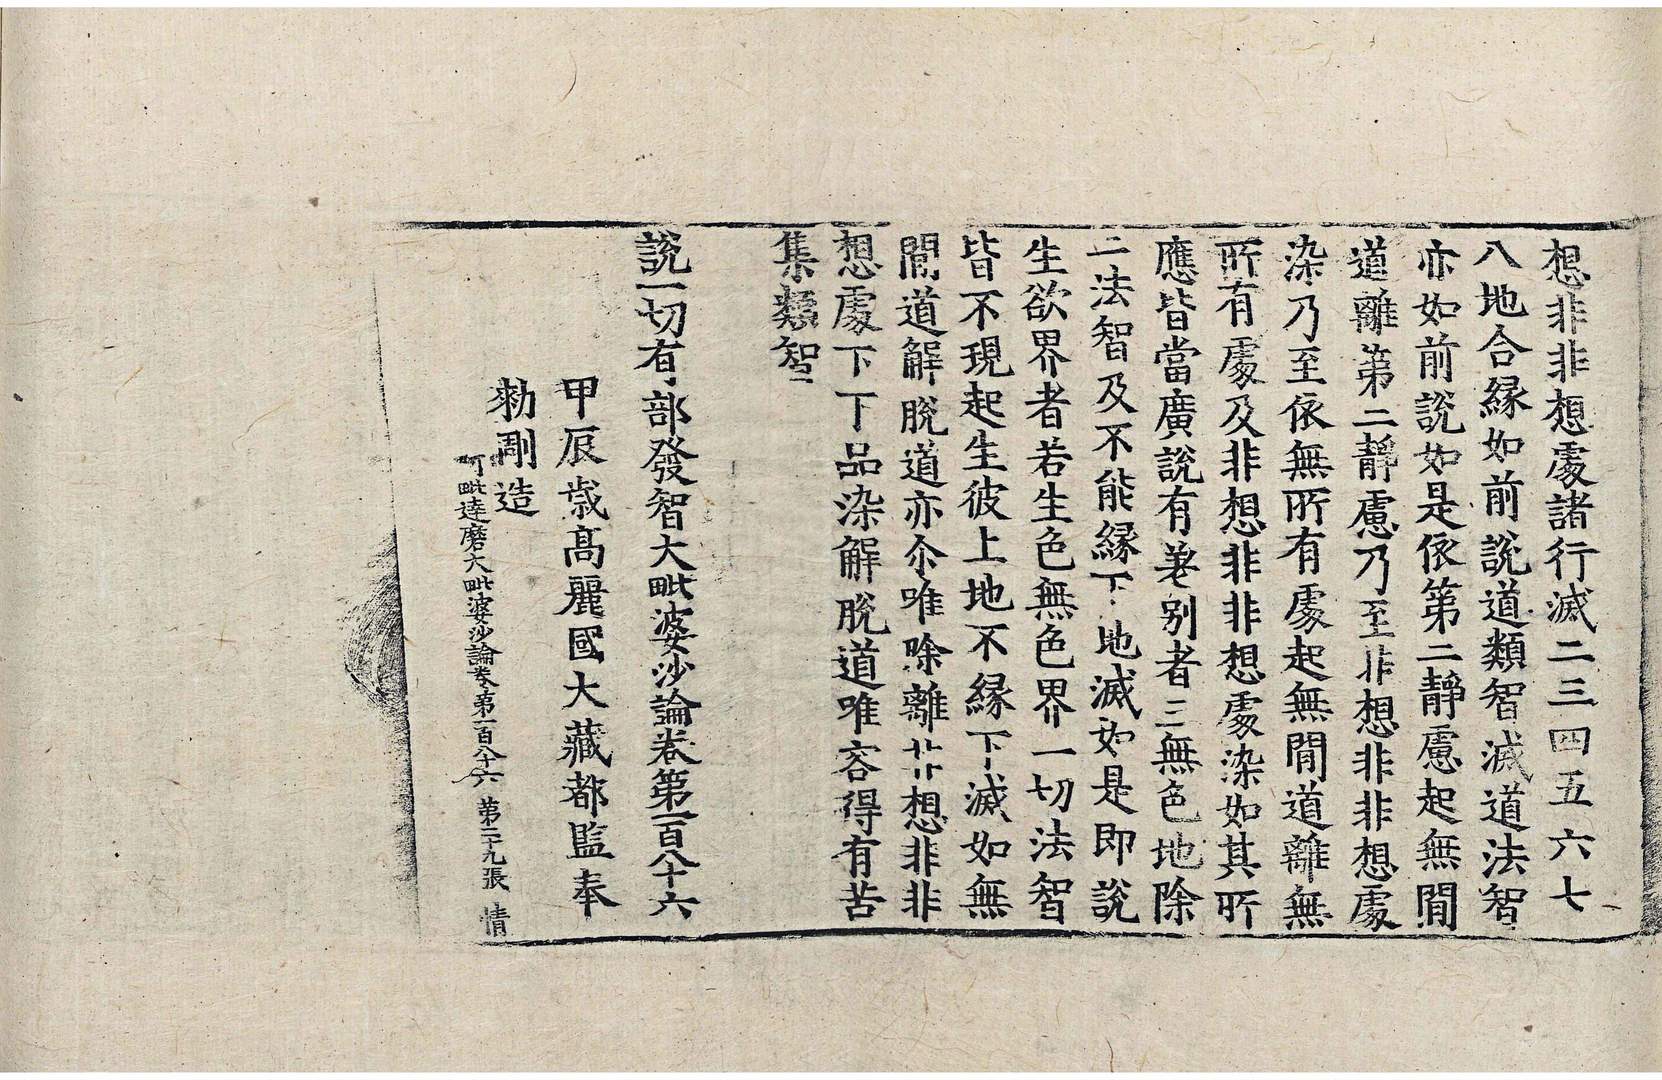 想非非想處諸行滅二三四五六七
八地合緣如前說道類智滅道法智
亦如前說如是依第二靜慮起無間
道離第二靜慮乃至非想非非想處
染乃至依無所有處起無間道離無
所有處及非想非非想處染如其所
應皆當廣說有差別者三無色地除
二法智及不能緣下地滅如是即說
生欲界者若生色無色界一切法智
皆不現起生彼上地不緣下滅如無
間道解脫道亦尒唯除離非想非非
想處下下品染解脫道唯容得有苦
集類智
說一切有部發智大毗婆沙論卷第一百八十六
甲辰歲高麗國大藏都監奉
勅彫造
阿毗達磨大毗婆沙論卷第一百八十六 第二十九張 情